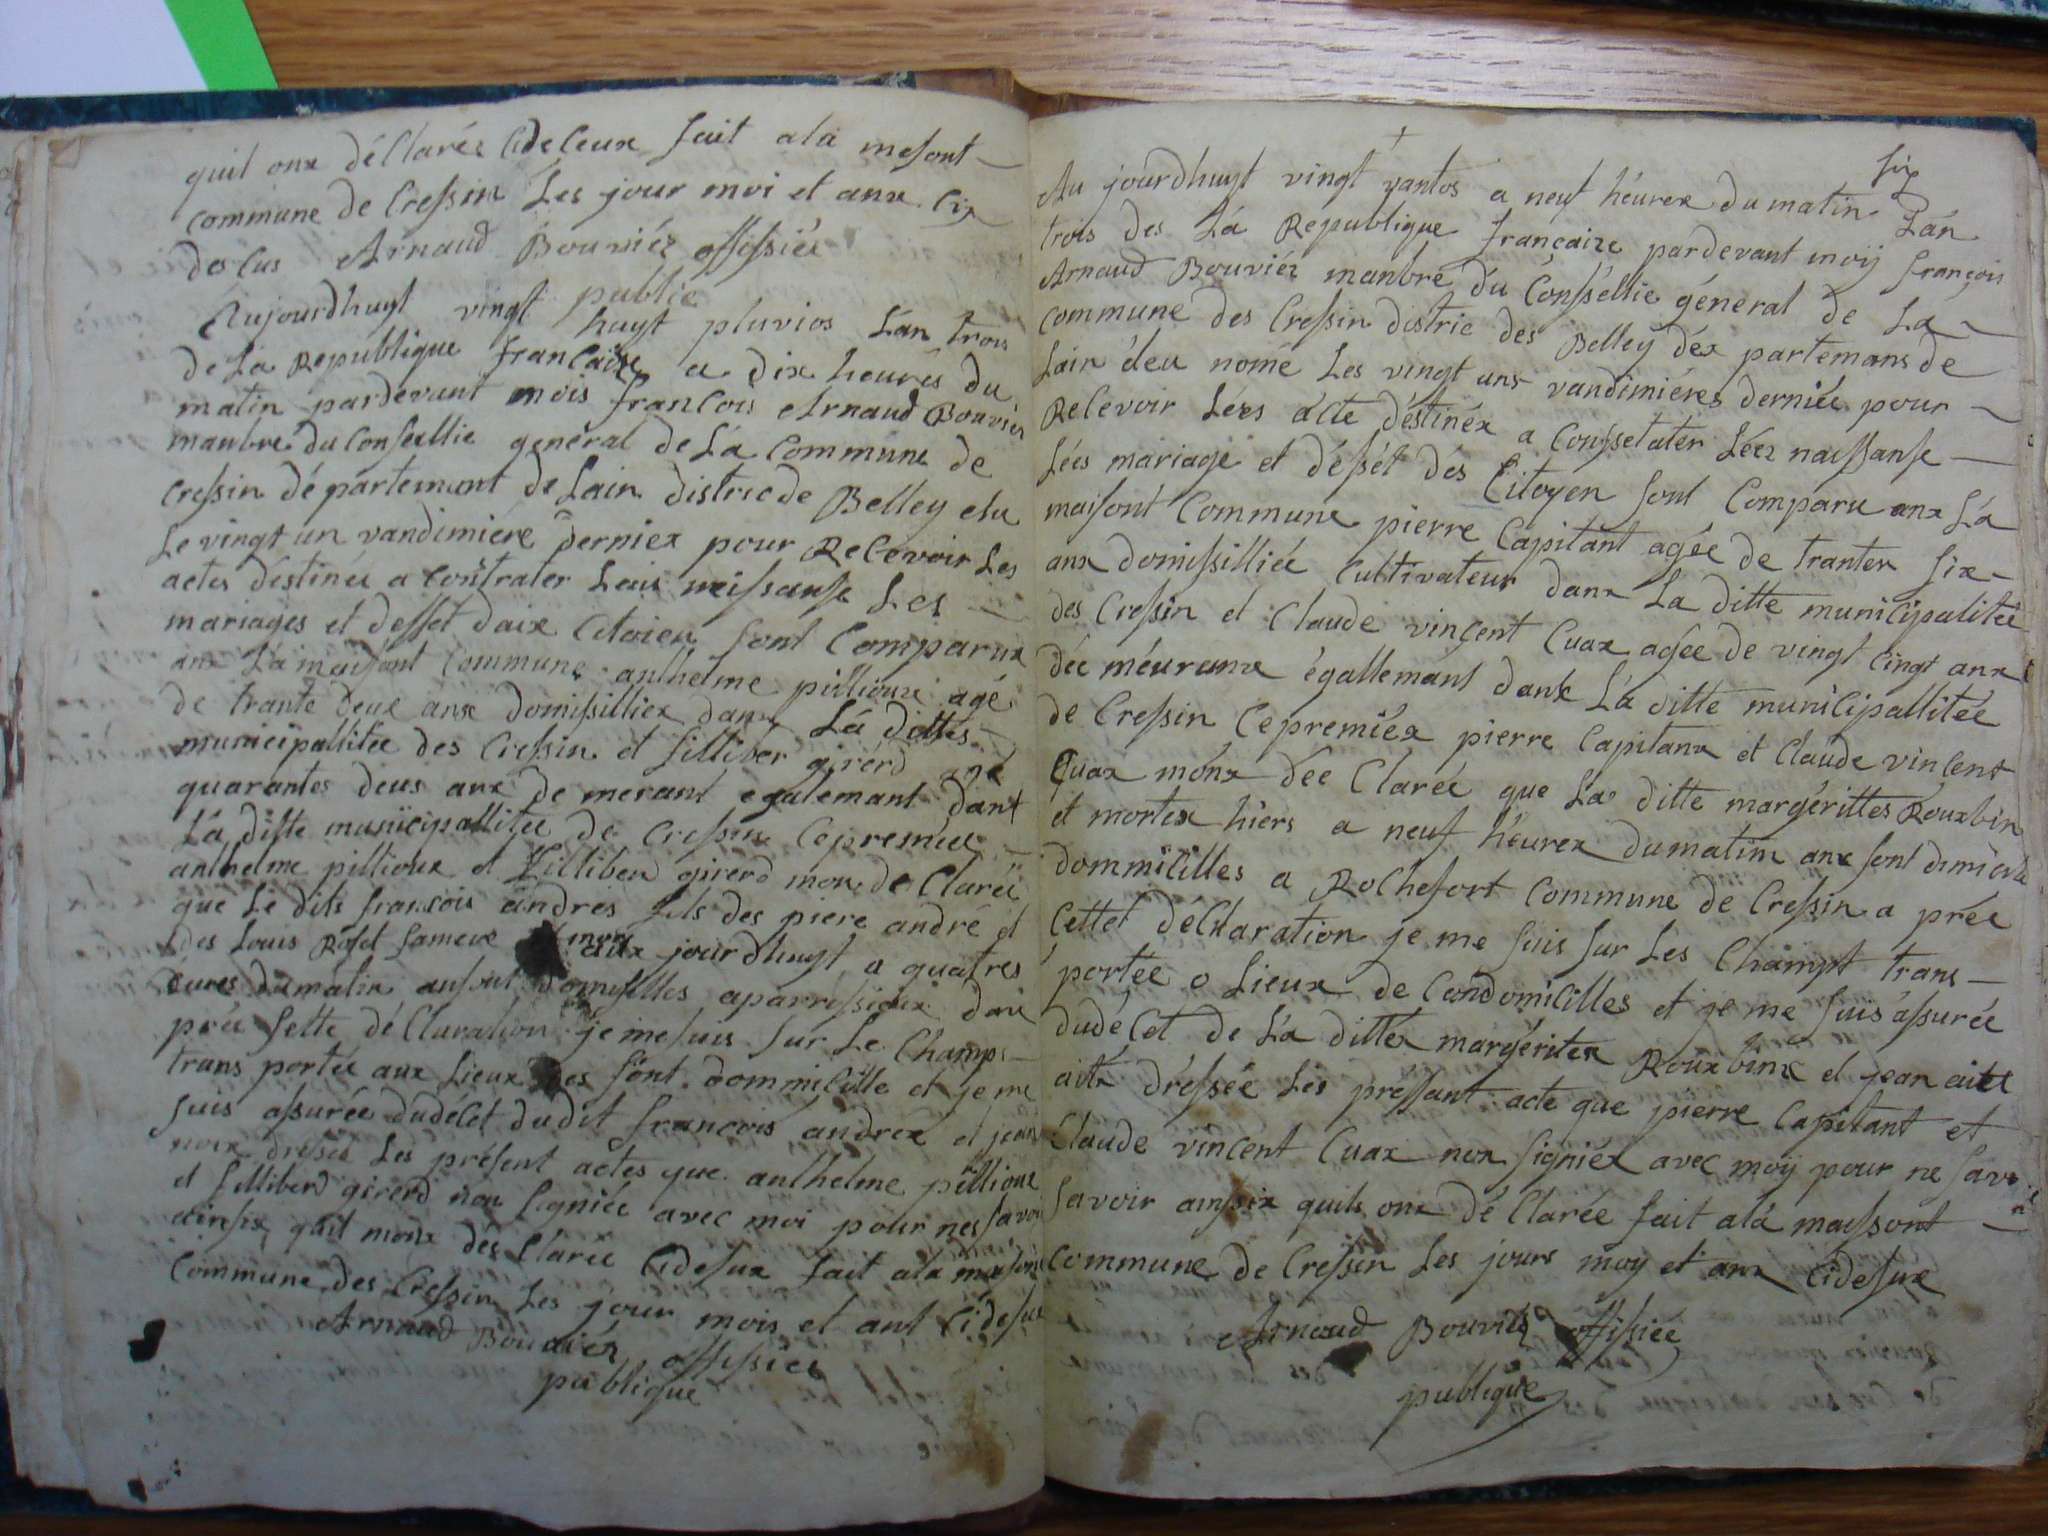 quil onx déClarés Cideleux fait ala mesont
commune de Cressin Les jour moi et anx Cix
desus Arnaud Bouviér offissiér
publie
Aujourdhuyt vingt huyt pluvios L'an trois
de La Republique francaixe a dix heures du
matin pardevant mois francois Arnaud Bouviér
manbre du Consellie genéral de La Commune de
Cressin département de Lain district de Belley elu
Le vingt un vandimiére dernier pour Relevoir Les
actes déstinés a Contrater Leais neissansse Les
mariages et desset daix Citoien sont Comparux
anx La maisont Commune anthelme pillioux agé
de trante deux anx domissilliex danx La dittes
municipallitee des Cressin et filliber girerd agé
quarantes deus anx de merant egalemant dant
La ditte municipallitee de Cressin Cepremiee
anthelme pillioux et filliberd girerd mon de Clarée
que Le dits francois andrés fils des piere andré et
des Louis Rosel samere mort aux jourdhuyt a quatres
eures dumatin ansont domisilles
prée sette déClaration je mesuis sur Le Champs
trans portée aux Lieux des sont dommicille et je me
suis assurée dudélet dudit francois andréx et jean
noix dresés Les présent actes que anthelme pillioux
et filliberd girerd non signiée avec moi pour nes savoi
ainsix quil monx dés Clarée Cidesux fait ala maisont
Commune des Cressin Les jour mois et ant Cidesux
Arnaud Bouviér offissiér
publique
six
Au jourdhuyt vingt vantos a neuf héurex dumatin L'an
trois des La Republique francaixe pardevant moij francois
Arnaud Bouviér manbre du Conssellie géneral de La
commune des Cressin distric des Belley déx partemans de
Lain éleu nomé Les vingt uns vandimiéres derniée pour
Relevoir Léés acte déstinéx a Conssetatér Léés naissansse
Léés mariage et déssét dés Citoyen sont Comparu anx La
maisont Commune pierre Capitant agée de trantex six
anx domissilliée Cultivateur danx La ditte municipalitée
des Cressin et Claude vincent Cuax agée de vingt Cingt anx
dée méuranx égallemant dansx La ditte municipallitée
de Cressin Cepremiéx pierre Capitanx et Claude vincent
Quax mónx dée Clarée que La ditte margérittes Rouxbin
et mortex hiers a neuf héurex dumatin anx sont
dommicilles a Rochefort Commune de Cressin a prée
Cettet déClaration je me suis sur Les Champt trans
portée o Lieux de Condomicilles et je me suis assurée
dudécet de La dittes margéritex Rouxbinx et jean aitét
aitx dréssée Lés pressant acte que pierre Capitant et
Claude vincent Cuax nonx signiéx avec moij pour ne savo
savoir ainssix quils onx dé Clarée fait ala maissont
commune de Cressin Les jours moy et anx Cidesux
Arnaud Bouviér offissiée
publique